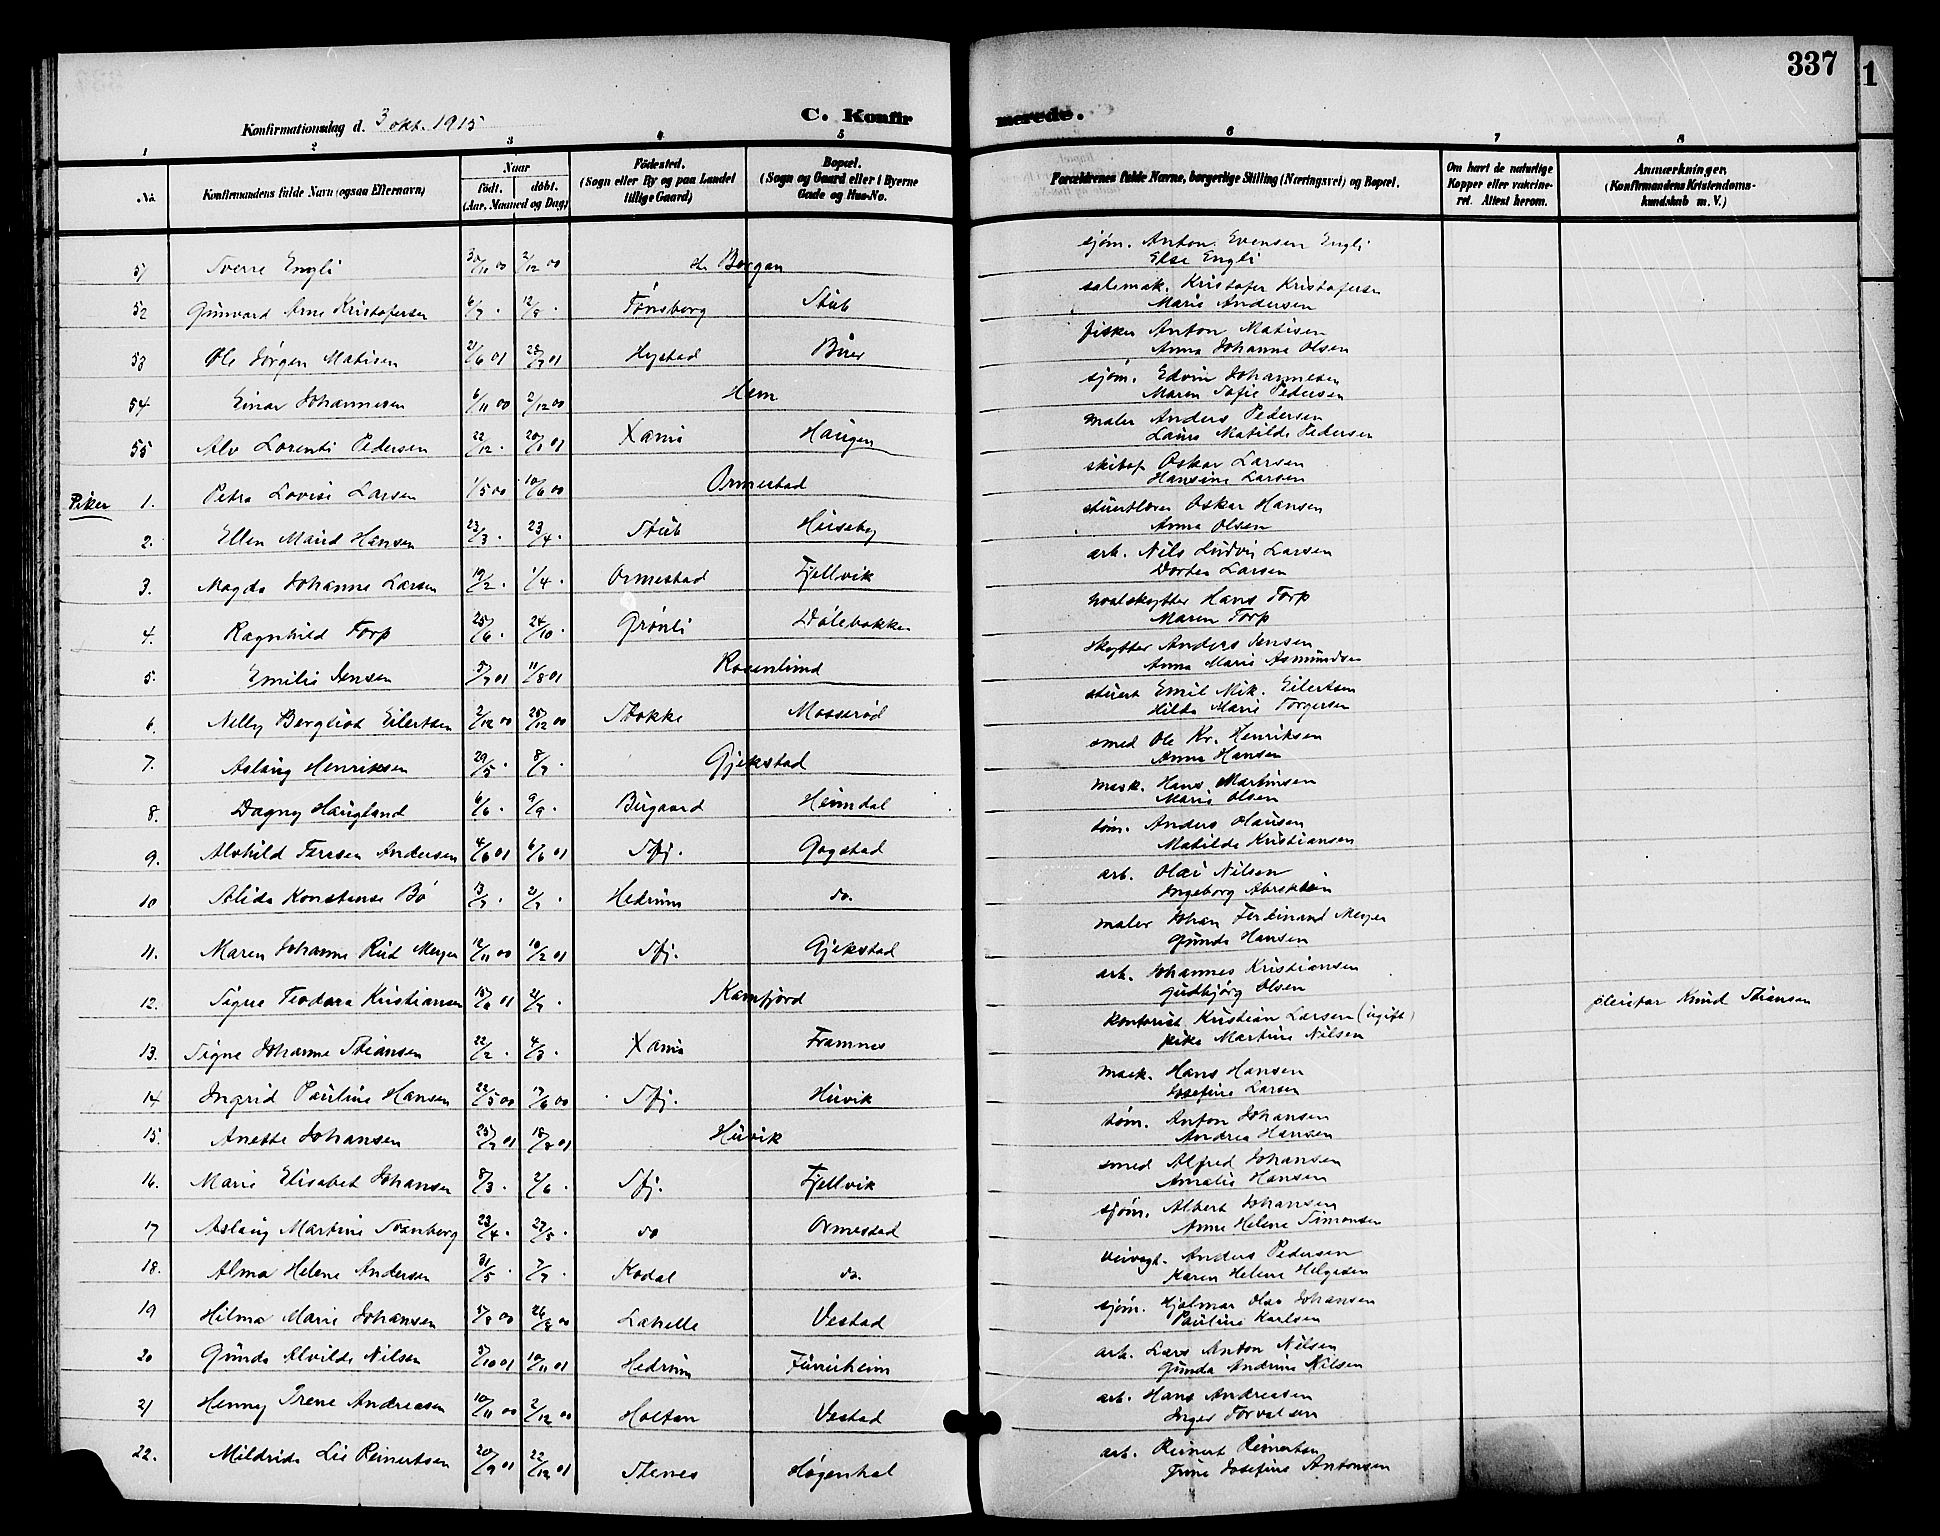 337
1
Konfirmationsdag d. 3 okt. 1915
C. Konfirmerede.
1 2 3 4 5 6 7 8
No
Konfirmandens fulde Navn (ogsaa Efternavn)
Naar
födt. döbt.
(Aar, Maaned og Dag)
Födested.
(Sogn eller By og paa Landet
tillige Gaard)
Bopæl.
(Sogn og Gaard eller i Byerne
Gade og Hus-No.
Forældrenes fulde Navne, borgerlige Stilling (Næringsvei) og Bopæl.
Om havt de naturlige
Kopper eller vaccine-
ret. Attest herom.
Anmærkninger,
(Konfirmandens Kristendoms-
kundskab m. V.)
51 Sverre Engli 30/11 00 2/12 00 Borgan sjøm. Anton Evensen Engli
Else Engli
52 Gunvard Arne Kristofersen 6/7 . 12/8 . Tønsberg Stub salemak. Kristofer Kristofersen
Marie Andersen
53 Ole Jørgen Matisen 21/6 01 28/7 01 Hystad Buer fisker Anton Matisen
Anna Johanne Olsen
54 Einar Johannesen 6/11 00 2/12 00 Hem sjøm. Edvin Johannesen
Maren Sofie Pedersen
55 Alv Lorents Pedersen 22/12 . 20/1 01 Xania Haugen maler Anders Pedersen
Laura Matilde Pedersen
Piker 1. Petra Lovise Larsen 1/5 00 10/6 00 Ormestad skibsf Oskar Larsen
Hansine Larsen
2. Ellen Maud Hansen 23/3 . 23/4 . Stub Huseby Oskar Hansen
Anna Olsen
3. Magda Johanne Larsen 19/2 . 1/4 . Ormestad Fjellvik arb. Nils Ludvig Larsen
Dortea Larsen
4. Ragnhild Torp 25/6 . 24/10 . Grønli Dølebakken hvalskytter Hans Torp
Maren Torp
5. Emilie Jensen 5/7 01 11/8 01 Rosenlund skytter Anders Jensen
Anna Marie Asmundsen
6. Nelly Bergliot Eilertsen 2/12 00 25/12 00 Stokke Mosserød stuert Emil Mik. Eilertsen
Hilda Marie Torgersen
7. Aslaug Henriksen 29/5 . 8/7 . Gjekstad smed Ole Kr. Henriksen
Anna Hansen
8. Dagny Haugland 6/6 . 9/9 . Bugaard Heimdal mask. Hans Martinsen
Marie Olsen
9. Alvhild Teresen Andersen 4/6 01 6/6 01 Sfj. Gogstad tøm. Anders Olausen
Matilde Kristiansen
10 Alida Konstanse Bö 13/7 . 21/7 . Hedrum do. arb. Olai Nilsen
Ingeborg
11. Maren Johanne Rud Meyer 12/11 00 10/2 01 Sfj. Gjekstad maler Johan Ferdinand Meyer
Gunda Hansen
12. Signe Teodora Kristiansen 15/6 01 21/7 Kamfjord arb. Johannes Kristiansen
Gudbjørg Olsen
13. Signe Johanne Stiansen 22/2 . 4/3 . Xania Framnes kontorist Kristian Larsen (ugift)
pike Martine Nilsen pleiefar Knud Stiansen
14 Ingrid Pauline Hansen 22/5 00 17/6 00 Sfj. Huvik mask. Hans Hansen
Josefine Larsen
15. Anette Johansen 25/7 01 18/8 01 Huvik tøm. Anton Johansen
Andrea Hansen
16. Marie Elisabet Johansen 8/3 . 2/6 . Sfj. Fjellvik smed Alfred Johansen
Amalie Hansen
17 Aslaug Martine Svanberg 23/4 . 27/5 . do Ormestad sjøm. Albert Johansen
Anne Helene Simonsen
18. Alma Helene Andersen 31/5 . 7/7 . Kodal do. veivogt. Anders Pedersen
Karen Helene Helgesen
19 Hilma Marie Johansen 5/8 00 26/8 00 Lahelle Vestad sjøm. Hjalmar Olao Johansen
Pauline Karlsen
20 Gunda Alvilde Nilsen 5/10 01 10/11 01 Hedrum Furuheim arb. Lars Anton Nilsen
Gunda Andrine Nilsen
21 Henny Irene Andreasen 10/11 00 2/12 00 Holtan Vestad arb. Hans Andreasen
Inger Torvalsen
22. Mildrida Lie Reinertsen 20/9 01 22/12 01 Stenes Høgenhal arb. Reinert Reinertsen
Trine Josefine Antonsen